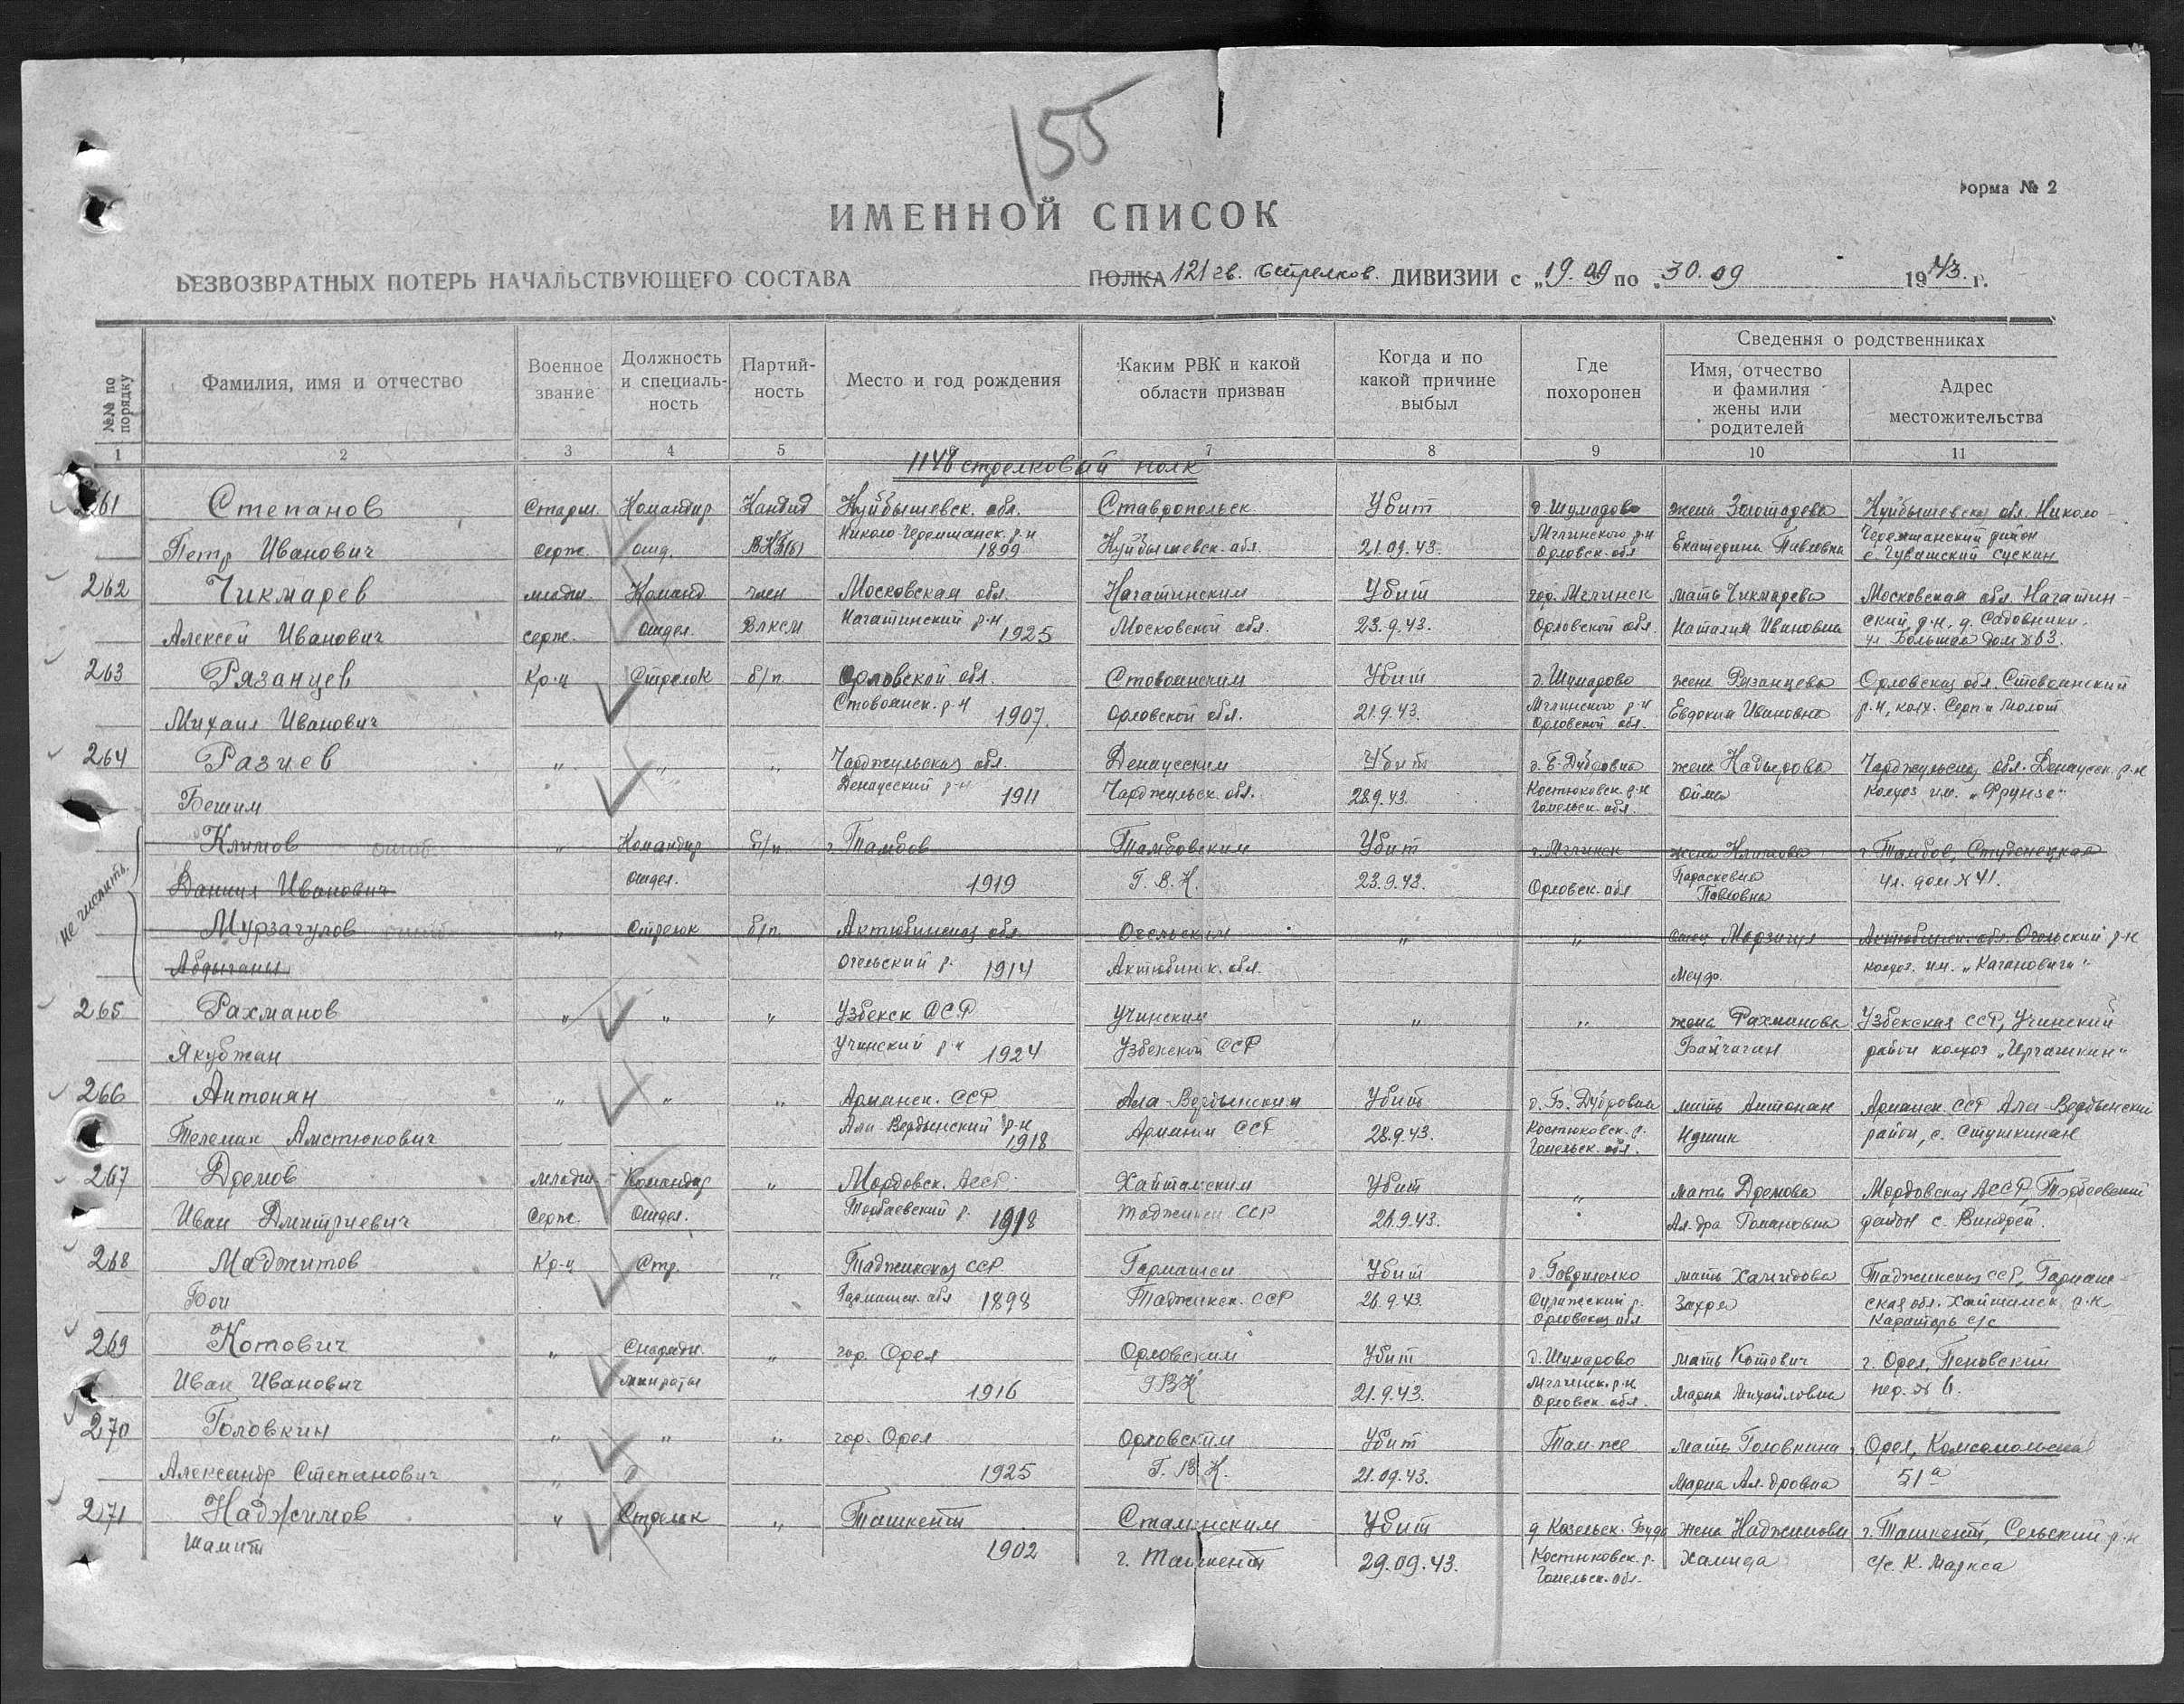 155
Форма № 2
ИМЕННОЙ СПИСОК
БЕЗВОЗВРАТНЫХ ПОТЕРЬ НАЧАЛЬСТВУЮЩЕГО СОСТАВА ПОЛКА 121 гв. стрелков. ДИВИЗИИ с „19.09 по „30.09 1943 г.
№№ по порядку | Фамилия, имя и отчество | Военное звание | Должность и специальность | Партийность | Место и год рождения | Каким РВК и какой области призван | Когда и по какой причине выбыл | Где похоронен | Сведения о родственниках
Имя, отчество и фамилия жены или родителей | Адрес местожительства
1 2 3 4 5 7 8 9 10 11
1148 стрелковый полк
261 Степанов Старш. Командир Кандид Куйбышевск. обл. Ставропольск Убит д. Шумарово жена Куйбышевская обл. Николо-
Петр Иванович серж. отд. ВКП(б) Николо Черемшанск. р-н 1899 Куйбышевск. обл. 21.09.43. Мглинского р-н Орловск. обл Екатерина Павловна Черемшанский район с Чувашский Сускан
262 Чикмарев младш. Команд. член Московская обл. Нагатинским Убит гор. Мглинск мать Чикмарева Московская обл. Нагатин-
Алексей Иванович серж. отдел. ВЛКСМ Нагатинский р-н 1925 Московской обл. 23.9.43. Орловской обл. Наталия Ивановна ский р-н, д. Садовники, ул. Большая дом № 63.
263 Рязанцев Кр-ц Стрелок б/п. Орловской обл. Убит д. Шумарово жена Рязанцева Орловская обл.
Михаил Иванович 1907. Орловской обл. 21.9.43. Мглинского р-н Орловской обл. Евдокия Ивановна р-н, колх. Серп и Молот
264 Разиев „ „ „ Чарджульская обл. Денауским Убит д. Б-Дубровка жена Надырова Чарджульская обл. Денауск. р-н
Бешим Денауский р-н 1911 Чарджульск. обл. 28.9.43. Костюковск. р-н Гомельск. обл. колхоз им. „Фрунзе“
не числить
Климов „ Командир б/п. г. Тамбов Тамбовским Убит г. Мглинск жена Климова г. Тамбов, Студенецкая
Даниил Иванович отдел. 1919 Г.В.К. 23.9.43. Орловск. обл Параскевия Павловна ул. дом № 41.
Мурзагулов „ Стрелок б/п. Актюбинская обл. „ „ Актюбинск. обл. р-н
1914 Актюбинск. обл. колхоз. им. „Кагановича“
265 Рахманов „ „ „ Узбекск ССР Учинским „ „ жена Рахманова Узбекская ССР, Учинский
Якубжан Учинский р-н 1924 Узбекской ССР район колхоз
266 Антонян „ „ „ Армянск. ССР Ала-Вердынским Убит д. Б. Дубровка мать Антонян Армянск. ССР Ала-Вердынский
1918 Армянск ССР 28.9.43. Костюковск. р. Гомельск. обл. район, с.
267 Дремов младш. Командир „ Мордовск. АССР. Убит „ мать Дремова Мордовская АССР, Торбеевский
Иван Дмитриевич Серж. Отдел. Торбеевский р. 1918 ССР 26.9.43. Ал-дра район с. Виндрей.
268 Маджитов Кр-ц Стр. „ Таджикская ССР Убит мать Таджикская ССР,
1898 Таджикск. ССР 26.9.43. Орловская обл Захра ская обл. р-н с/с
269 Котович „ „ гор. Орел Орловским Убит д. Шумарово мать Котович г. Орел,
Иван Иванович 1916 ГВК 21.9.43. Мглинск. р-н Орловск. обл. Мария Михайловна пер. № 6.
270 Головкин „ „ „ гор. Орел Орловским Убит Там-же мать Головкина Орел, Комсомольская
Александр Степанович „ 1925 Г.В.К. 21.09.43. Мария Ал-дровна 51а
271 Наджимов „ Стрелок „ Ташкент Сталинским Убит д. Козельск. Буда жена Наджимова г. Ташкент, р-н
1902 г. Ташкент 29.09.43. Костюковск. р. Гомельск. обл. Халида с/с К. Маркса